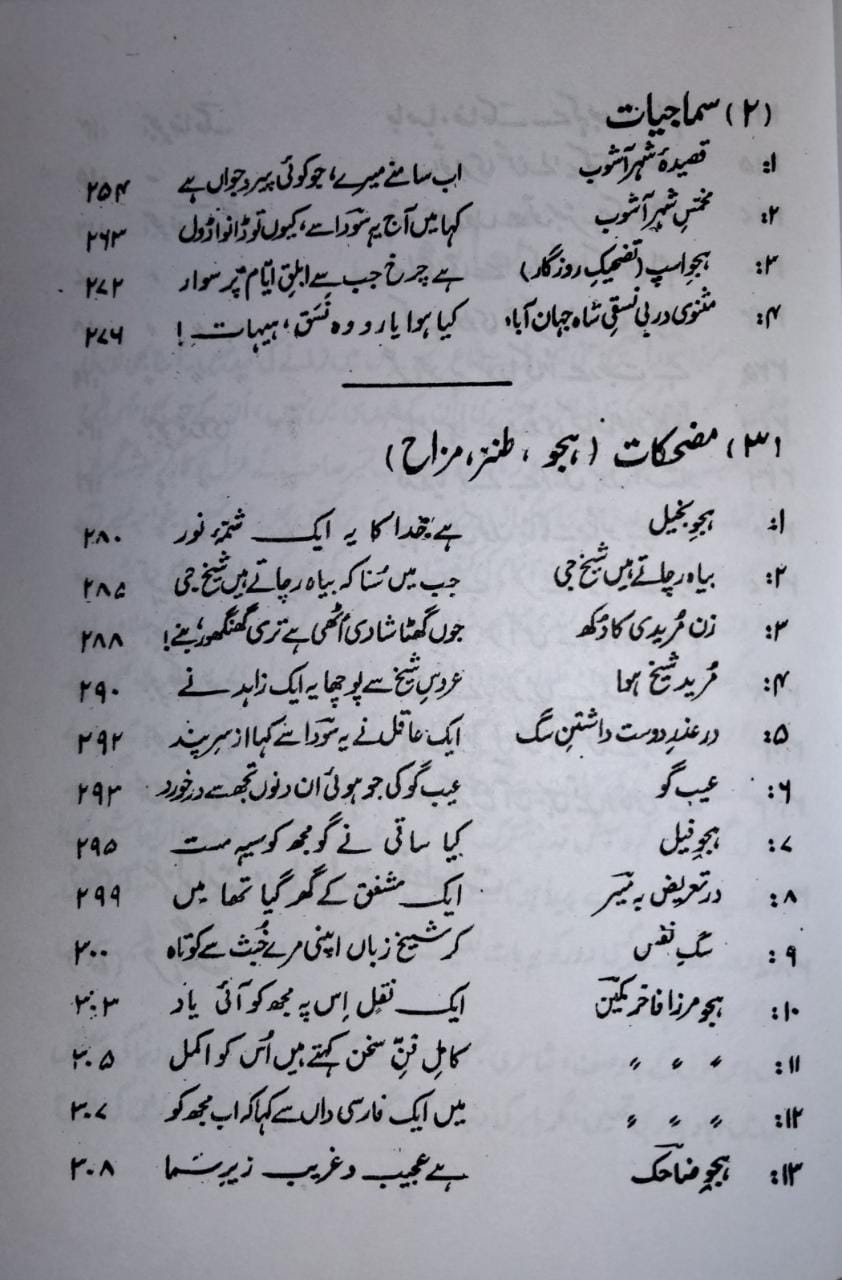 (۲) سماجیات
۱: قصیدۂ شہر آشوب اب سامنے میرے، جو کوئی پیر و جواں ہے ۲۵۴
۲: مخمسِ شہر آشوب کہا میں آج یہ سوداؔ سے، کیوں تو ڈانوا ڈول ۲۶۳
۳: ہجوِ اسپ (تضحیکِ روزگار) ہے چرخ جب سے ابلقِ ایّام پر سوار ۲۷۲
۴: مثنوی در بی نسقیِ شاہ جہان آباد کیا ہوا یارو وہ نَسَق، ہیہات! ۲۷۶
(۳) مضحکات (ہجو، طنز، مزاح)
۱: ہجوِ بخیل ہے خدا کا یہ ایک شمّۂ نور ۲۸۰
۲: بیاہ رچاتے ہیں شیخ جی جب میں سُنا کہ بیاہ رچاتے ہیں شیخ جی ۲۸۵
۳: زن مُریدی کا دُکھ جوں گھٹا شادی اُٹھی ہے تری گھنگھور، بنے! ۲۸۸
۴: مُریدِ شیخ ہوا عروسِ شیخ سے پوچھا یہ ایک زاہد نے ۲۹۰
۵: در عذرِ دوست داشتنِ سگ ایک عاقل نے یہ سوداؔ سے کہا از سرِ پند ۲۹۲
۶: عیب گو عیب گو کی جو ہوئی ان دنوں تجھ سے در خورد ۲۹۳
۷: ہجوِ فیل کیا ساقی نے گو مجھ کو سیہ مست ۲۹۵
۸: در تعریض بہ میرؔ ایک مشفق کے گھر گیا تھا میں ۲۹۹
۹: سگِ نفس کر شیخ زباں اپنی مرے خُبث سے کوتاہ ۳۰۰
۱۰: ہجوِ مرزا فاخر مکینؔ ایک نقل اِس پہ مجھ کو آئی یاد ۳۰۳
۱۱: 〃 〃 〃 کاملِ فنِّ سخن کہتے ہیں اُس کو اکمل ۳۰۵
۱۲: 〃 〃 〃 میں ایک فارسی داں سے کہا کہ اب مجھ کو ۳۰۷
۱۳: ہجوِ ضاحکؔ ہے عجیب و غریب زیرِ سَما ۳۰۸